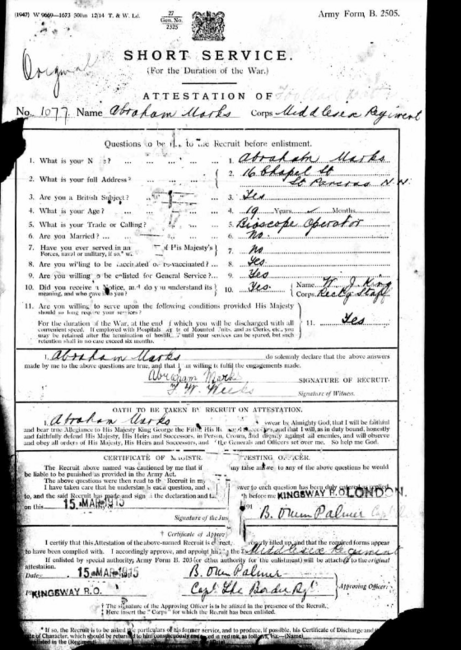 (1947) W 9660—1673 500m 12/14 T. & W. Ld.
27
Gen. No.
2525
Army Form B. 2505.
Original
SHORT SERVICE.
(For the Duration of the War.)
ATTESTATION OF
No. 1077 Name Abraham Marks Corps Middlesex Regiment
Questions to be to the Recruit before enlistment.
1. What is your N ? 1. Abraham Marks
2. What is your full Address? 2. 16 Chapel St
St Pancras N.W.
3. Are you a British Subject? 3. Yes
4. What is your Age? 4. 19 Years Months
5. What is your Trade or Calling? 5. Bioscope Operator
6. Are you Married? 6. No
7. Have you ever served in any of His Majesty's
Forces, naval or military, if so, 7. No
8. Are you willing to be vaccinated or re-vaccinated? 8. Yes
9. Are you willing to be enlisted for General Service? 9. Yes
10. Did you receive a Notice, and do you understand its
meaning, and who gave it to you? 10. Yes Name W. J. King
Corps Rectg Staff
11. Are you willing to serve upon the following conditions provided His Majesty
should so long require your services?
For the duration of the War, at the end of which you will be discharged with all
convenient speed. If employed with Hospitals, of Mounted Units, and as Clerks, etc., you
may be retained after the termination of hostilities until your services can be spared, but such
retention shall in no case exceed six months. 11. Yes
I, Abraham Marks do solemnly declare that the above answers
made by me to the above questions are true, and that I am willing to fulfil the engagements made.
Abraham Marks SIGNATURE OF RECRUIT.
Signature of Witness.
OATH TO BE TAKEN BY RECRUIT ON ATTESTATION.
I, Abraham Marks swear by Almighty God, that I will be faithful
and bear true Allegiance to His Majesty King George the Fifth, His Heirs and Successors, and that I will, as in duty bound, honestly
and faithfully defend His Majesty, His Heirs and Successors, in Person, Crown, and dignity against all enemies, and will observe
and obey all orders of His Majesty, His Heirs and Successors, and of the Generals and Officers set over me. So help me God.
CERTIFICATE OF MAGISTR TESTING OFFICER.
The Recruit above named was cautioned by me that if any false answer to any of the above questions he would
be liable to be punished as provided in the Army Act.
The above questions were then read to the Recruit in my
I have taken care that he understands each question, and swer to each question has been duly
to, and the said Recruit has made and signed the declaration and ta h before me KINGSWAY R.O. LONDON.
on this 15 MAR 1915
B. Owen Palmer Capt
Signature of the Jus
† Certificate of Approval
I certify that this Attestation of the above-named Recruit is correct, filled up, and that the required forms appear
to have been complied with. I accordingly approve, and appoint him to the Middlesex Regiment
If enlisted by special authority, Army Form B. 203 (or other authority for the enlistment) will be attached to the original
attestation.
Date 15 MAR 1915 B. Owen Palmer
KINGSWAY R.O. Capt The Border Rgt Approving Officer
† The signature of the Approving Officer is to be affixed in the presence of the Recruit.
Here insert the "Corps" for which the Recruit has been enlisted.
* If so, the Recruit is to be asked the particulars of his former service, and to produce, if possible, his Certificate of Discharge and
of Character, which should be returned to him